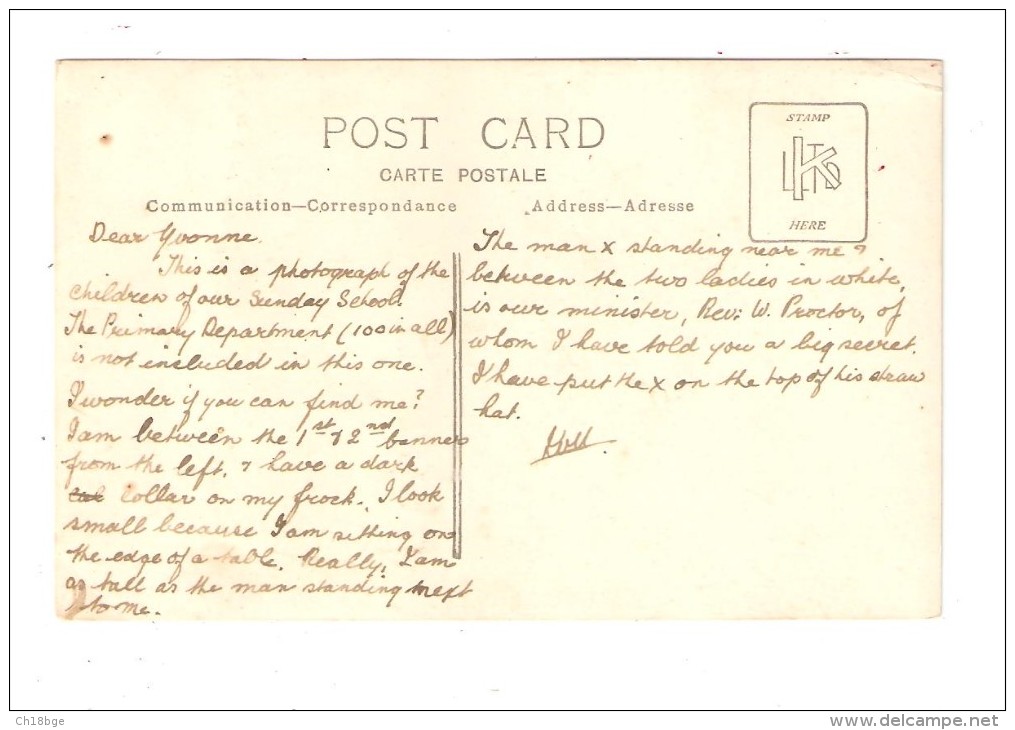 POST CARD
CARTE POSTALE
Communication—Correspondance
Address—Adresse
STAMP
HERE
Dear Yvonne.
This is a photograph of the
children of our Sunday School.
The Primary Department (100 in all)
is not included in this one.
I wonder if you can find me?
I am between the 1st & 2nd banners
from the left, & have a dark
collar on my frock. I look
small because I am sitting on
the edge of a table. Really, I am
as tall as the man standing next
to me.
The man x standing near me &
between the two ladies in white,
is our minister, Rev: W. Proctor, of
whom I have told you a big secret.
I have put the x on the top of his straw
hat.
Ch18bge
www.delcampe.net